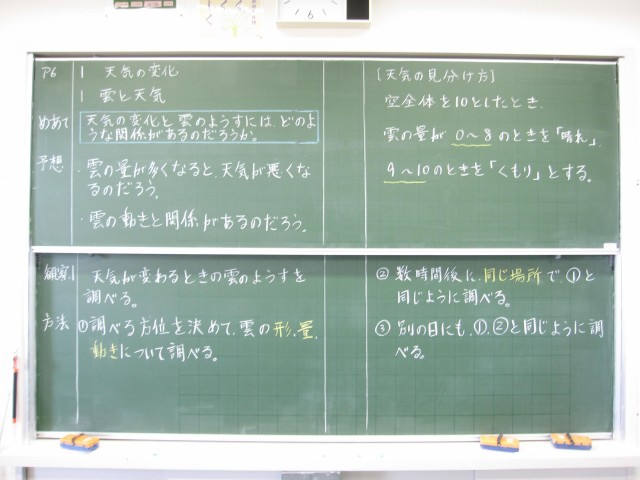 P6
1 天気の変化
1 雲と天気
めあて
天気の変化と雲のようすには、どのよ
うな関係があるのだろうか。
予想
・雲の量が多くなると、天気が悪くな
るのだろう。
・雲の動きと関係があるのだろう。
[天気の見分け方]
空全体を10としたとき、
雲の量が0〜8のときを「晴れ」
9〜10のときを「くもり」とする。
観察1
天気が変わるときの雲のようすを
調べる。
方法
①調べる方位を決めて、雲の形、量、
動きについて調べる。
②数時間後に、同じ場所で①と
同じように調べる。
③別の日にも、①、②と同じように調
べる。
6